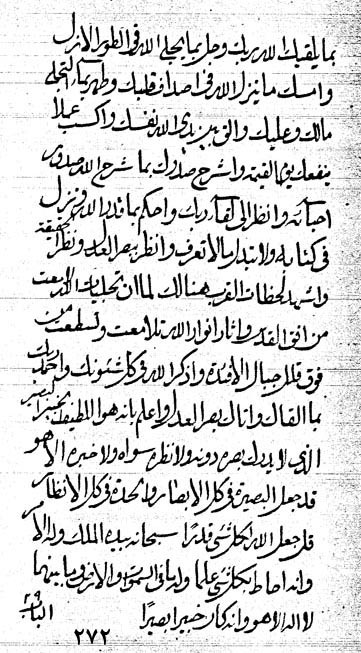 بما يلقيك الله ربك وحل بما يحلى الله فى الطور الازل
وامسك ما ينزل الله فى اصداف قلبك وطهر بماء التجلى
مالك وعليك والق بين يدى الله نفسك واكسب عملا
ينفعك يوم القيمة واشرح صدرك بما شرح الله صدور
احبائه وانظر الى لقاء ربك واحكم بما قدر الله ونزل
فى كتابه ولا بما لا تعرف وانظر بعين العدل ونظر الحقيقة
واشهد لحظات القرب هنالك لما ان تجليات الله لامعت
من افق القدس واثار انوار الله تلامعت وتسطعت من
فوق قلل جبال الافئدة واذكر الله فى كل شئونك واحمد ربك
بما القاك واناك بعين العدل واعلم بانه هو اللطيف الخبير البصير
الذى لا يدرك بصره دونه ولا نظره سواه ولا خبيره الا هو
قد جعل البصيرة فى كل الابصار والحدة فى كل الانظار
قد جعل الله لكل شئ قدرا سبحانه بيده الملك وله الامر
وانه احاط بكل شئ علما وله ما فى السموات والارض وما بينهما
لا اله الا هو وانه كان خبيرا بصيرا الباب ٤٩
٢٧٢